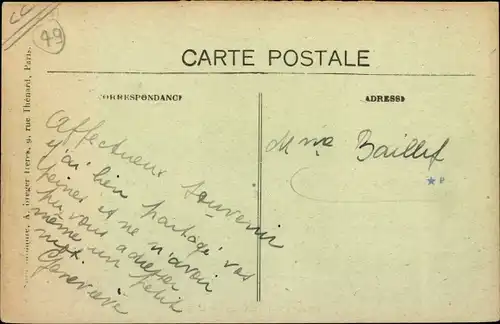 49
CARTE POSTALE
CORRESPONDANCE
ADRESSE
A. Breger frères, 9, rue Thénard, Paris.
Affectueux souvenir
j'ai bien partagé vos
peines et ne n'avoir
pu vous adresser
même un petit
mot
Geneviève
Mme Baillif